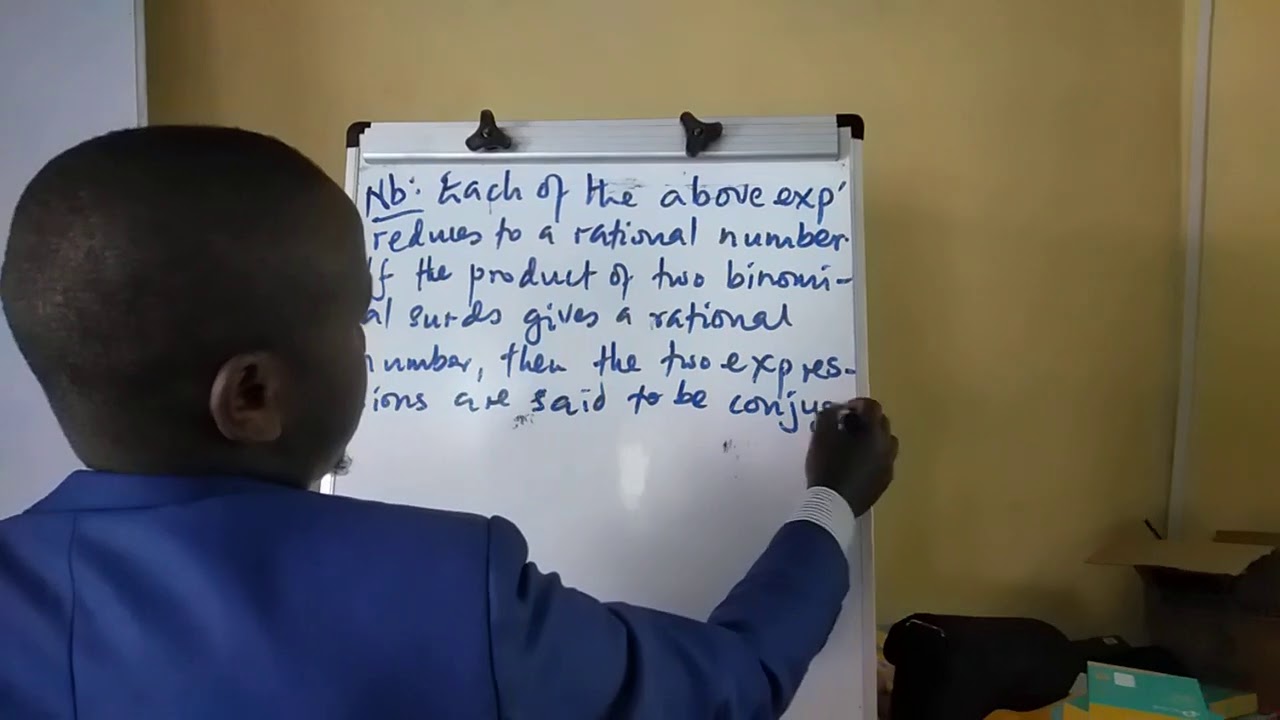 Nb: Each of the above exp'
reduces to a rational number.
If the product of two binomi-
al surds gives a rational
number, then the two expres-
ions are said to be conju